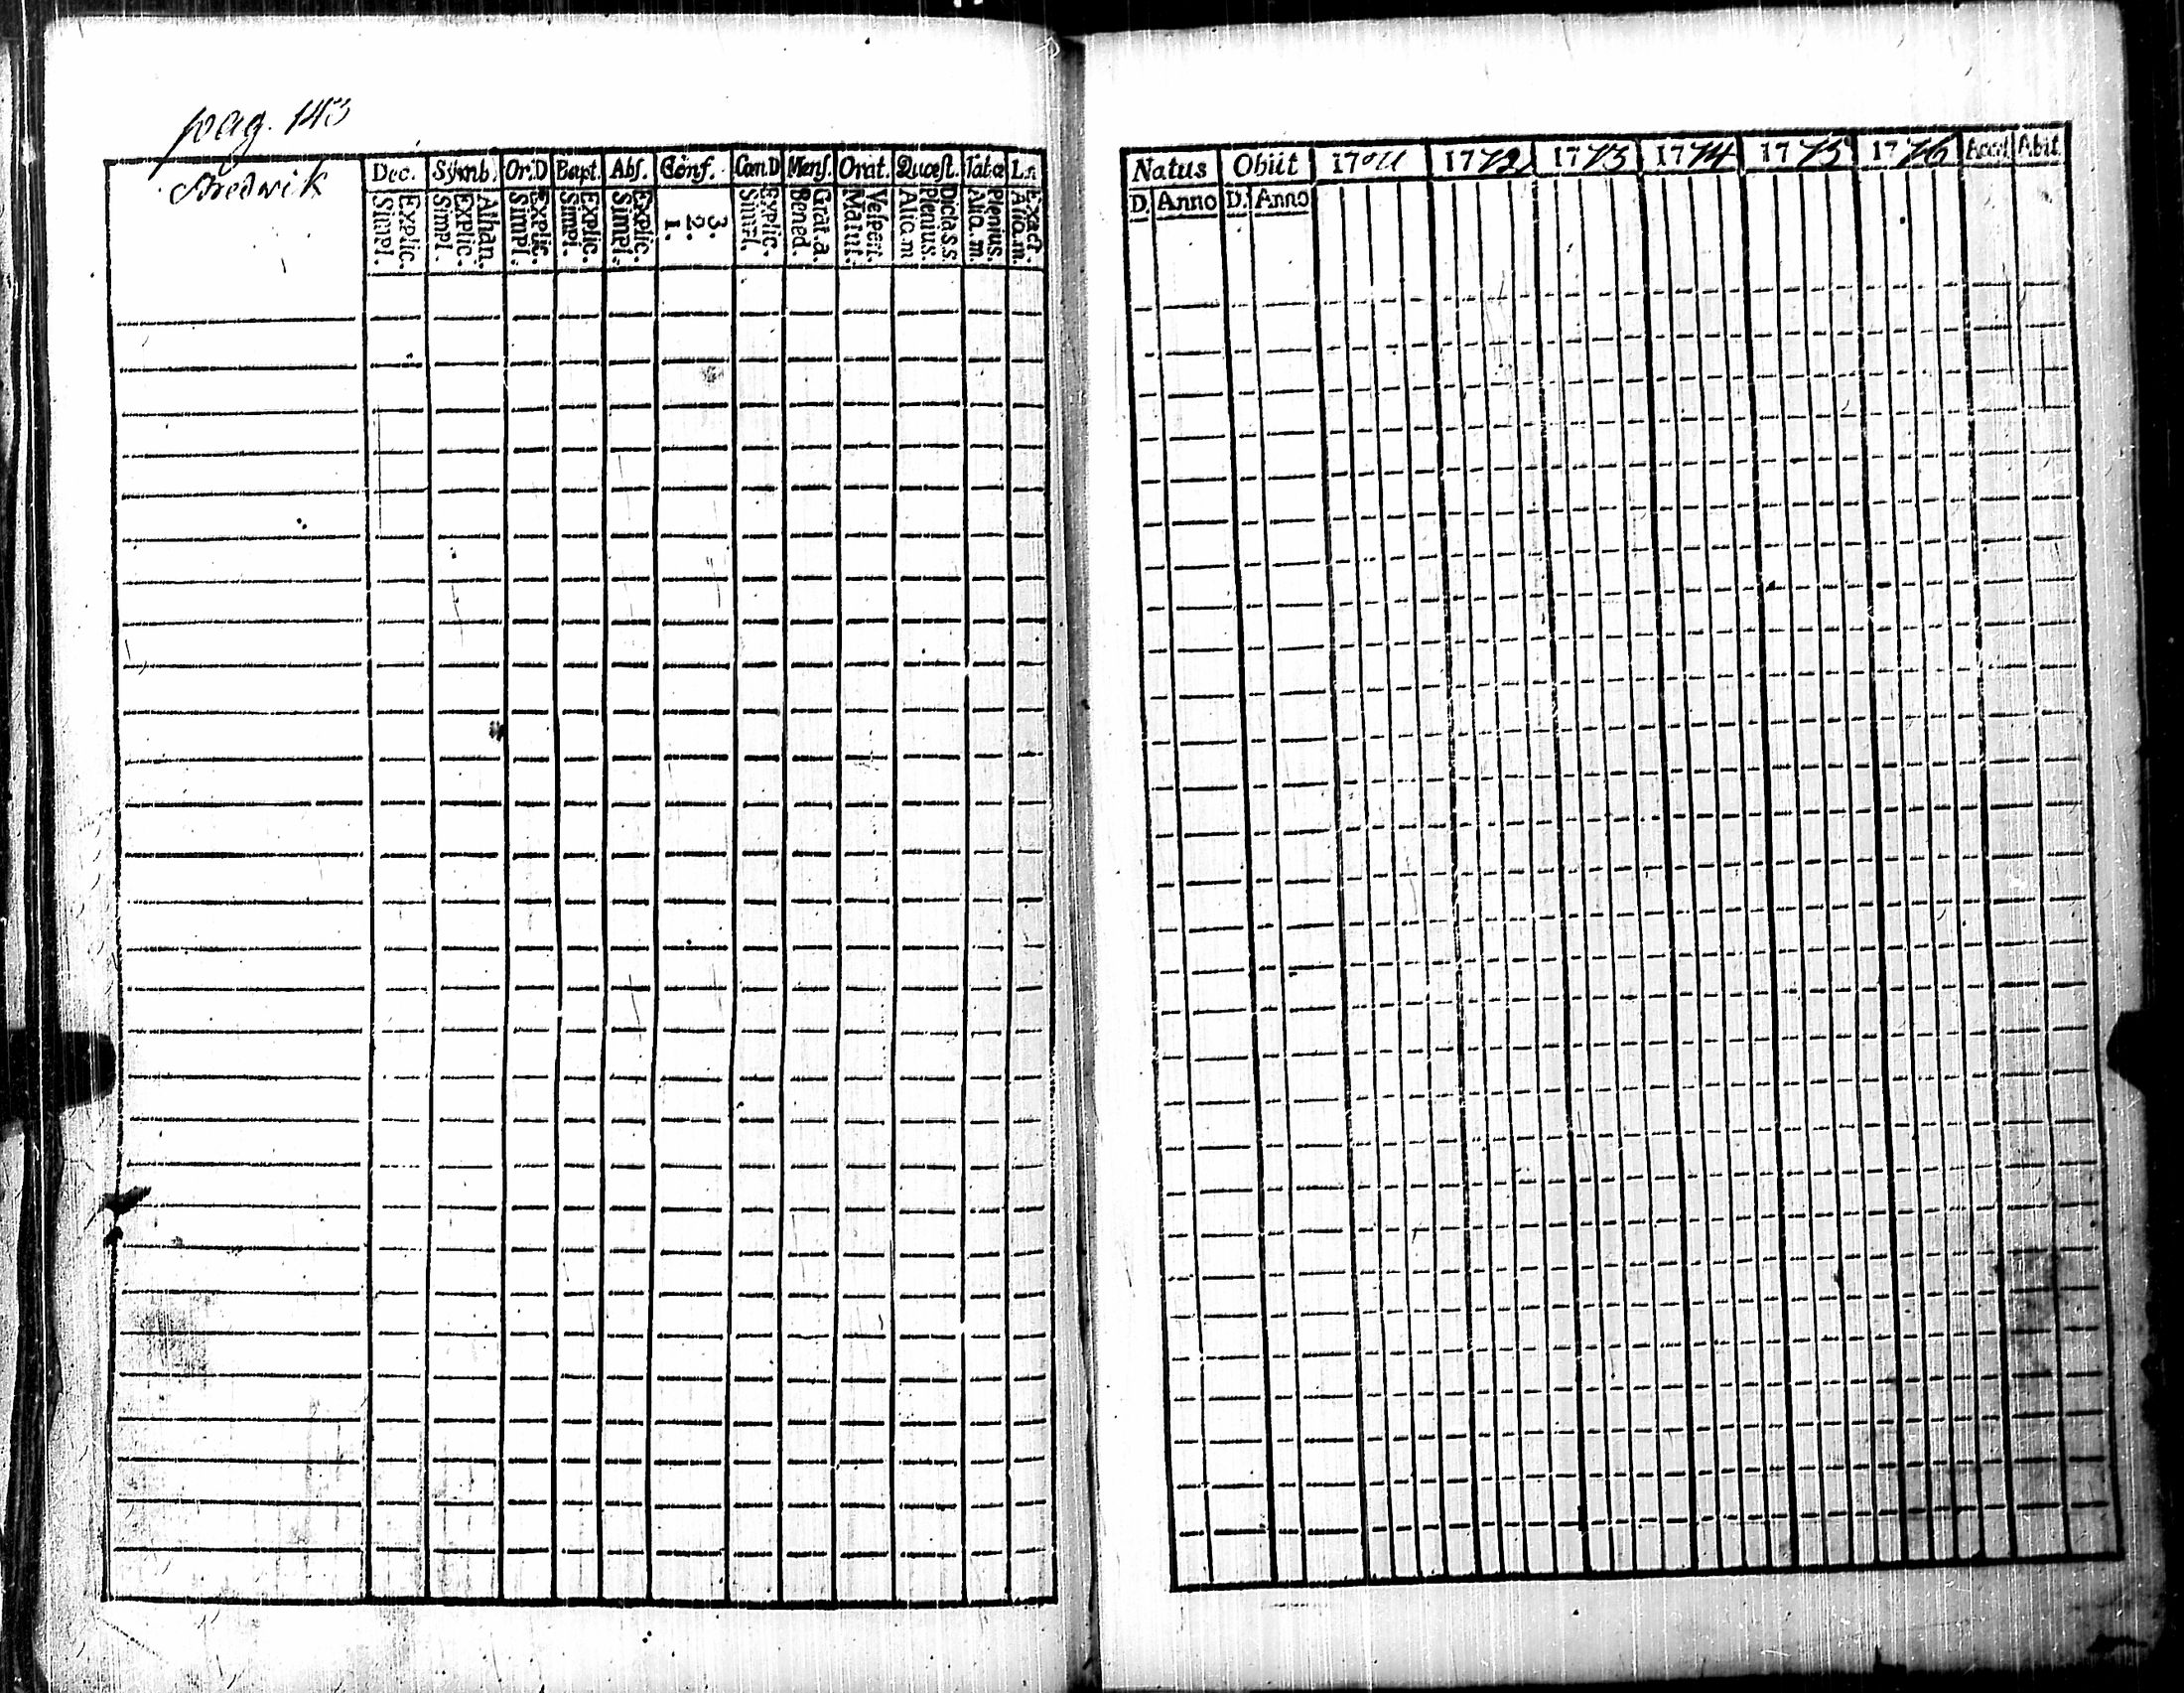 pag. 143
Bredwik
Dec. Symb. Or.D Bapt. Abs. Conf. Cœn.D Mens. Orat. Quæst. Tab.œ L.n
Explic. Simpl.
Athan. Explic. Simpl.
Explic. Simpl.
Explic. Simpl.
Explic. Simpl.
3. 2. 1.
Explic. Simpl.
Grat.a. Bened.
Vesperi. Matut.
Dicta S.S Plenius. Aliq.m
Plenius. Aliq.m.
Exact. Aliq.m.
Natus Obiit 1771 1772 1773 1774 1775 1776 Accel Abit
D. Anno D. Anno